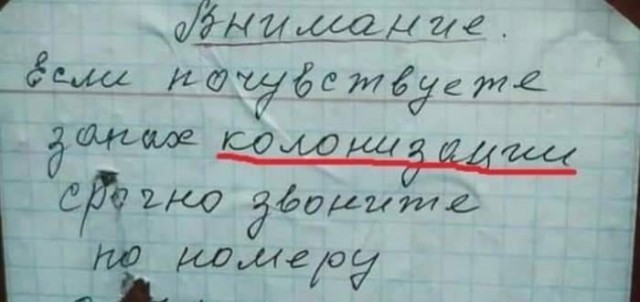 Внимание.
Если почувствуете
запах колонизации
срочно звоните
по номеру